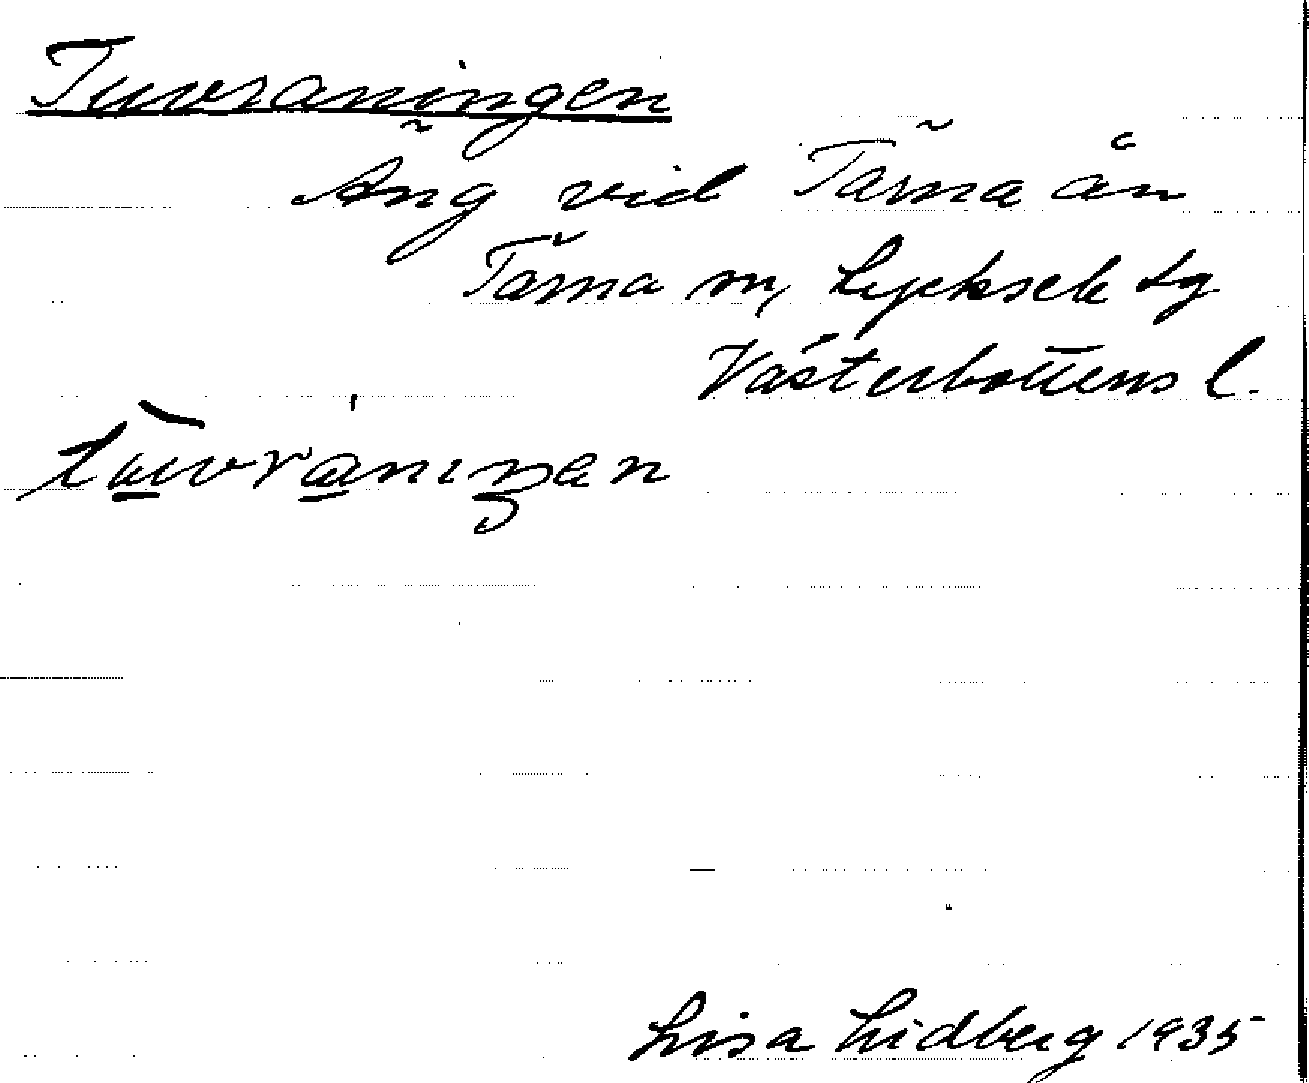 Tuvraningen
Äng vid Tärna ån
Tärna sn, Lycksele lg
Västerbottens l.
tùvrániŋən
Lisa Lidberg 1935